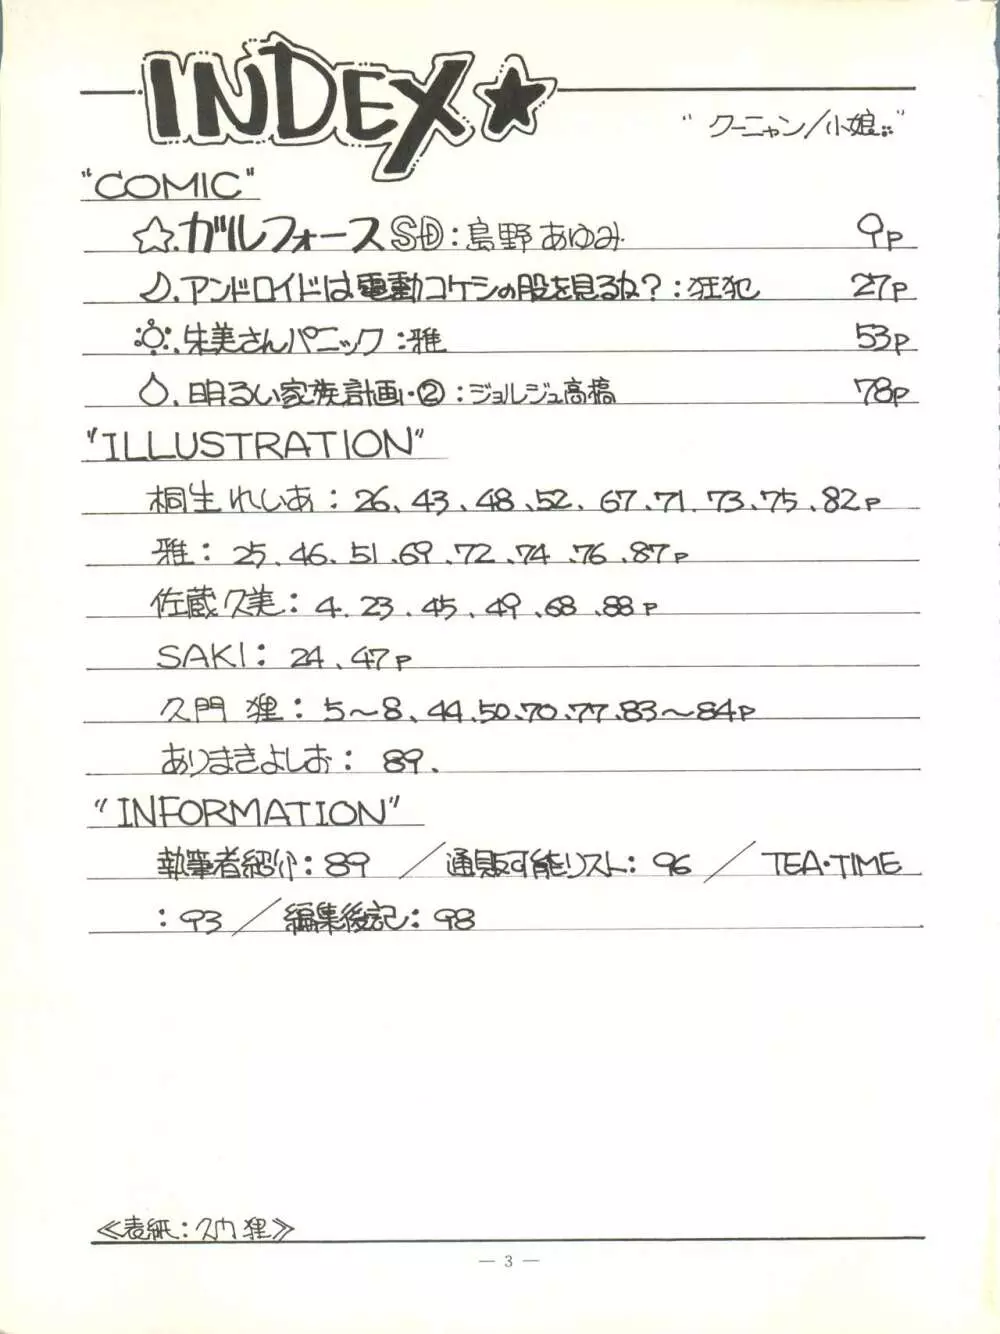 INDEX★
"クーニャン/小娘:："
"COMIC"
☆.ガルフォースSD:島野あゆみ 9p
♪.アンドロイドは電動コケシの股を見るね?:狂犯 27p
.朱美さんパニック:雅 53p
.明るい家族計画・②:ジョルジュ高橋 78p
"ILLUSTRATION"
桐生れいあ:26、43、48、52、67、71、73、75、82p
雅:25、46、51、69、72、74、76、87p
佐蔵久美:4、23、45、49、68、88p
SAKI:24、47p
久門 狸:5〜8、44、50、70、77、83〜84p
ありまきよしお:89.
"INFORMATION"
執筆者紹介:89 /通販可能リスト:96 / TEA・TIME
:93 /編集後記:98
≪表紙:久門 狸≫
— 3 —